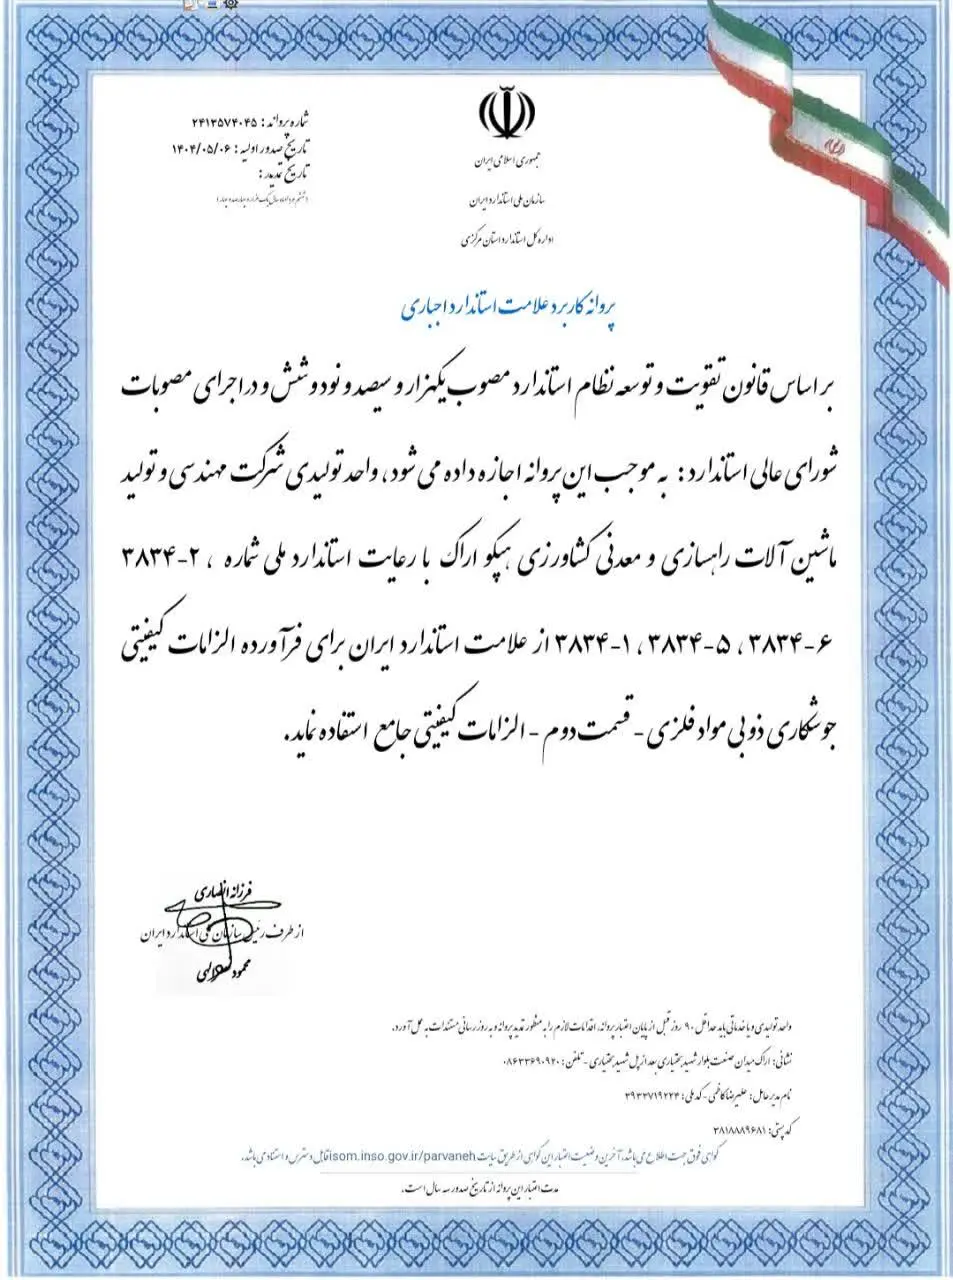 شماره پروانه : ۲۴۱۳۵۷۴۰۴۵
تاریخ صدور اولیه : ۱۴۰۴/۰۵/۰۶
تاریخ تمدید :
جمهوری اسلامی ایران
سازمان ملی استاندارد ایران
اداره کل استاندارد استان مرکزی
پروانه کاربرد علامت استاندارد اجباری
بر اساس قانون تقویت و توسعه نظام استاندارد مصوب یکهزار و سیصد و نود و شش و در اجرای مصوبات
شورای عالی استاندارد : به موجب این پروانه اجازه داده می شود، واحد تولیدی شرکت مهندسی و تولید
ماشین آلات راهسازی و معدنی کشاورزی هپکو اراک با رعایت استاندارد ملی شماره ، ۲-۳۸۳۴
۶-۳۸۳۴ ، ۵-۳۸۳۴ ، ۱-۳۸۳۴ از علامت استاندارد ایران برای فرآورده الزامات کیفیتی
جوشکاری ذوبی مواد فلزی - قسمت دوم - الزامات کیفیتی جامع استفاده نماید.
فرزانه انصاری
از طرف رئیس سازمان ملی استاندارد ایران
محمود
واحد تولیدی و یا خدماتی باید حداقل ۹۰ روز قبل از پایان اعتبار پروانه، اقدامات لازم را به منظور تمدید پروانه و به روز رسانی مستندات به عمل آورد.
نشانی: اراک میدان صنعت بلوار شهید بختیاری بعد از پل شهید بختیاری - تلفن : ۰۸۶۳۳۶۹۰۹۲۰
نام مدیر عامل : علیرضا کاظمی - کد ملی : ۳۹۳۳۷۱۹۲۲۳
کد پستی: ۳۸۱۸۸۸۹۶۸۱
گواهی فوق جهت اطلاع می باشد، آخرین وضعیت اعتبار این گواهی از طریق سایت isom.inso.gov.ir/parvaneh قابل دسترس و استناد می باشد.
مدت اعتبار این پروانه از تاریخ صدور سه سال است.